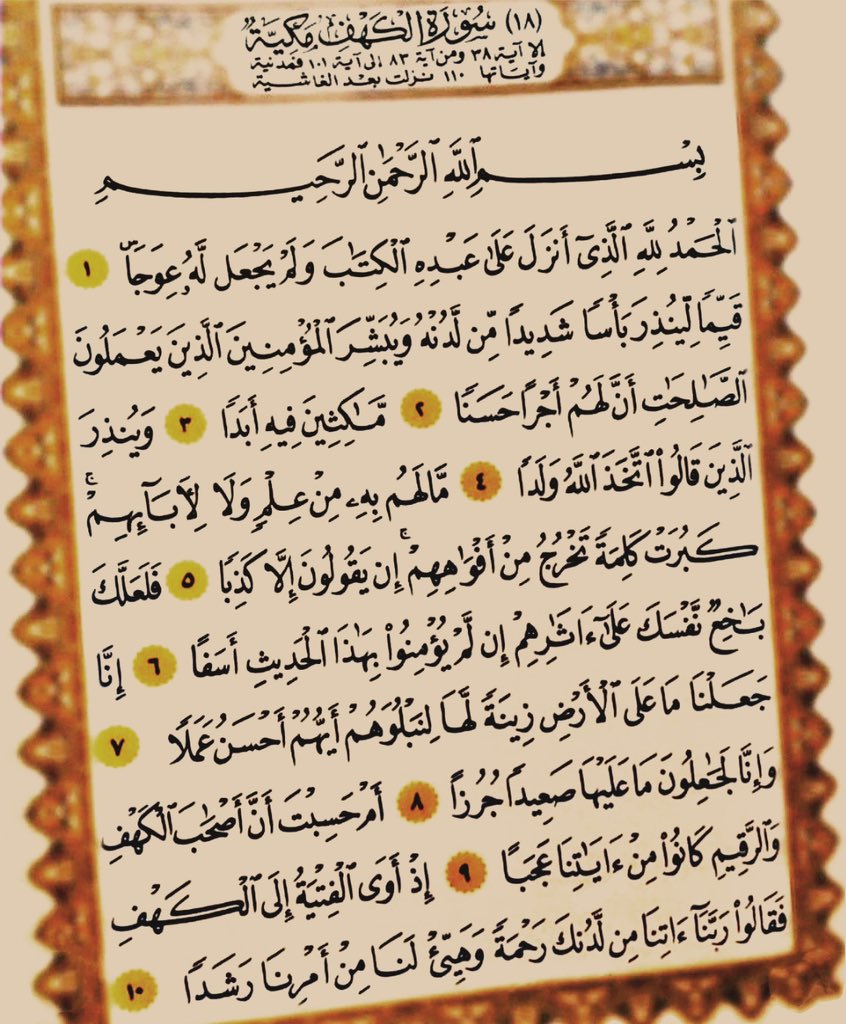 (١٨) سُورَةُ الكَهْفِ مَكِّيَّةٌ
إلا آية ٣٨ ومن آية ٨٣ إلى آية ١٠١ فمدنية
وآياتها ١١٠ نزلت بعد الغاشية
بِسْمِ ٱللَّهِ ٱلرَّحْمَٰنِ ٱلرَّحِيمِ
ٱلْحَمْدُ لِلَّهِ ٱلَّذِىٓ أَنزَلَ عَلَىٰ عَبْدِهِ ٱلْكِتَٰبَ وَلَمْ يَجْعَل لَّهُۥ عِوَجَاۜ ١
قَيِّمًا لِّيُنذِرَ بَأْسًا شَدِيدًا مِّن لَّدُنْهُ وَيُبَشِّرَ ٱلْمُؤْمِنِينَ ٱلَّذِينَ يَعْمَلُونَ
ٱلصَّٰلِحَٰتِ أَنَّ لَهُمْ أَجْرًا حَسَنًا ٢ مَّٰكِثِينَ فِيهِ أَبَدًا ٣ وَيُنذِرَ
ٱلَّذِينَ قَالُوا۟ ٱتَّخَذَ ٱللَّهُ وَلَدًا ٤ مَّا لَهُم بِهِۦ مِنْ عِلْمٍ وَلَا لِـَٔابَآئِهِمْ ۚ
كَبُرَتْ كَلِمَةً تَخْرُجُ مِنْ أَفْوَٰهِهِمْ ۚ إِن يَقُولُونَ إِلَّا كَذِبًا ٥ فَلَعَلَّكَ
بَٰخِعٌ نَّفْسَكَ عَلَىٰٓ ءَاثَٰرِهِمْ إِن لَّمْ يُؤْمِنُوا۟ بِهَٰذَا ٱلْحَدِيثِ أَسَفًا ٦ إِنَّا
جَعَلْنَا مَا عَلَى ٱلْأَرْضِ زِينَةً لَّهَا لِنَبْلُوَهُمْ أَيُّهُمْ أَحْسَنُ عَمَلًا ٧
وَإِنَّا لَجَٰعِلُونَ مَا عَلَيْهَا صَعِيدًا جُرُزًا ٨ أَمْ حَسِبْتَ أَنَّ أَصْحَٰبَ ٱلْكَهْفِ
وَٱلرَّقِيمِ كَانُوا۟ مِنْ ءَايَٰتِنَا عَجَبًا ٩ إِذْ أَوَى ٱلْفِتْيَةُ إِلَى ٱلْكَهْفِ
فَقَالُوا۟ رَبَّنَآ ءَاتِنَا مِن لَّدُنكَ رَحْمَةً وَهَيِّئْ لَنَا مِنْ أَمْرِنَا رَشَدًا ١٠